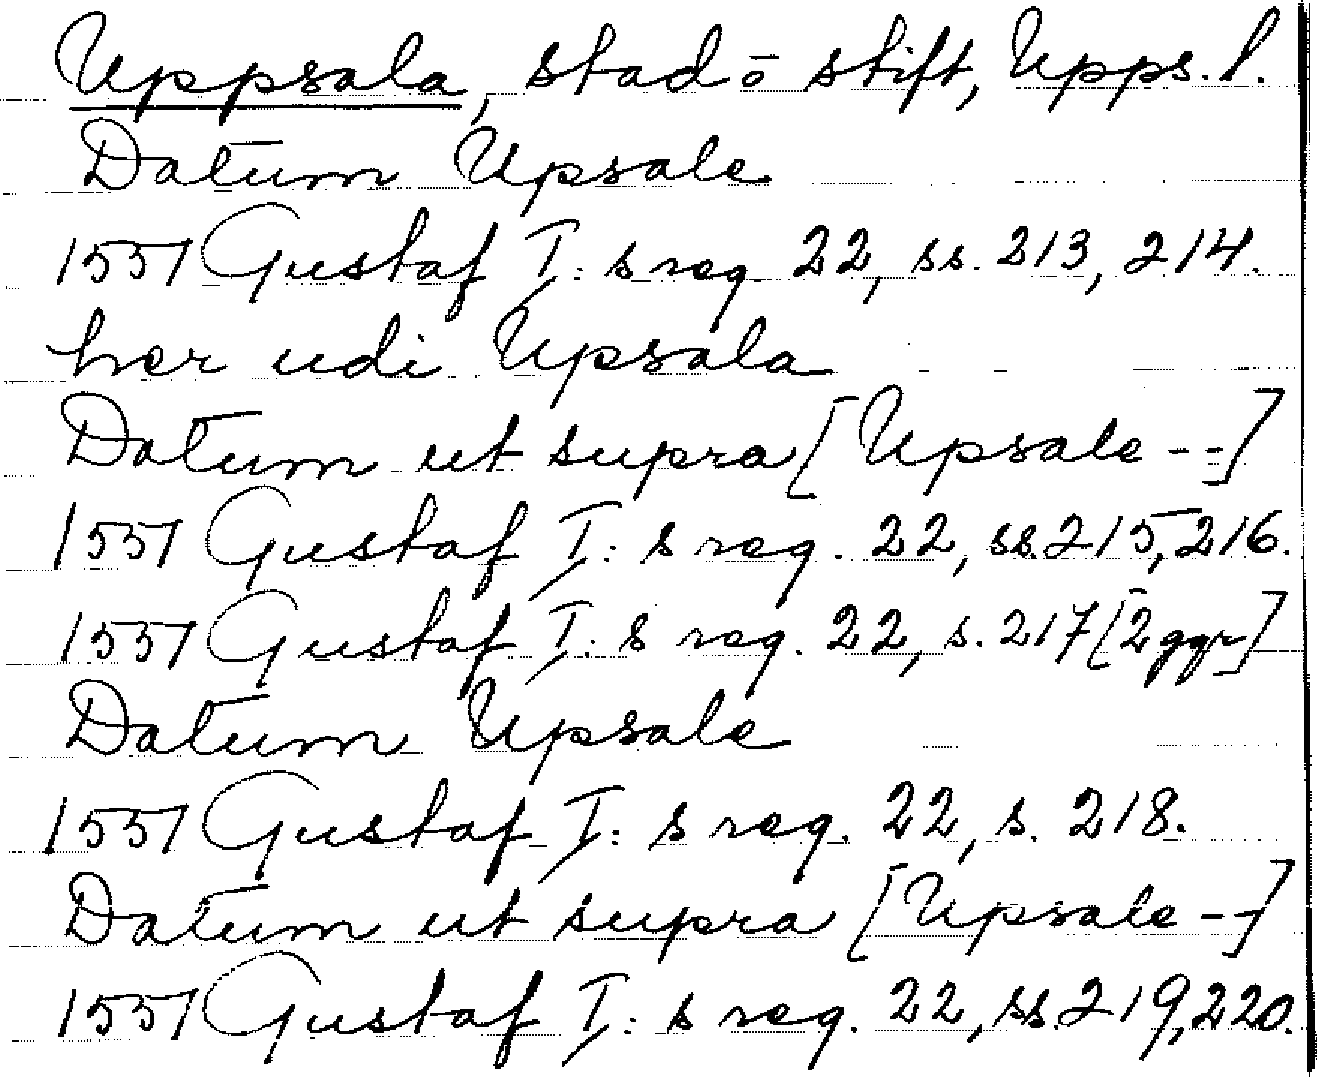 Uppsala, stad o stift, Upps. l.
Datum Upsale
1551 Gustaf I:s reg 22, ss. 213, 214.
her udi Upsala
Datum ut supra [Upsale --]
1551 Gustaf I:s reg. 22, ss. 215, 216.
1551 Gustaf I:s reg. 22, s. 217 [2 ggr]
Datum Upsale
1551 Gustaf I:s reg. 22, s. 218.
Datum ut supra [Upsale --]
1551 Gustaf I:s reg. 22, ss. 219, 220.